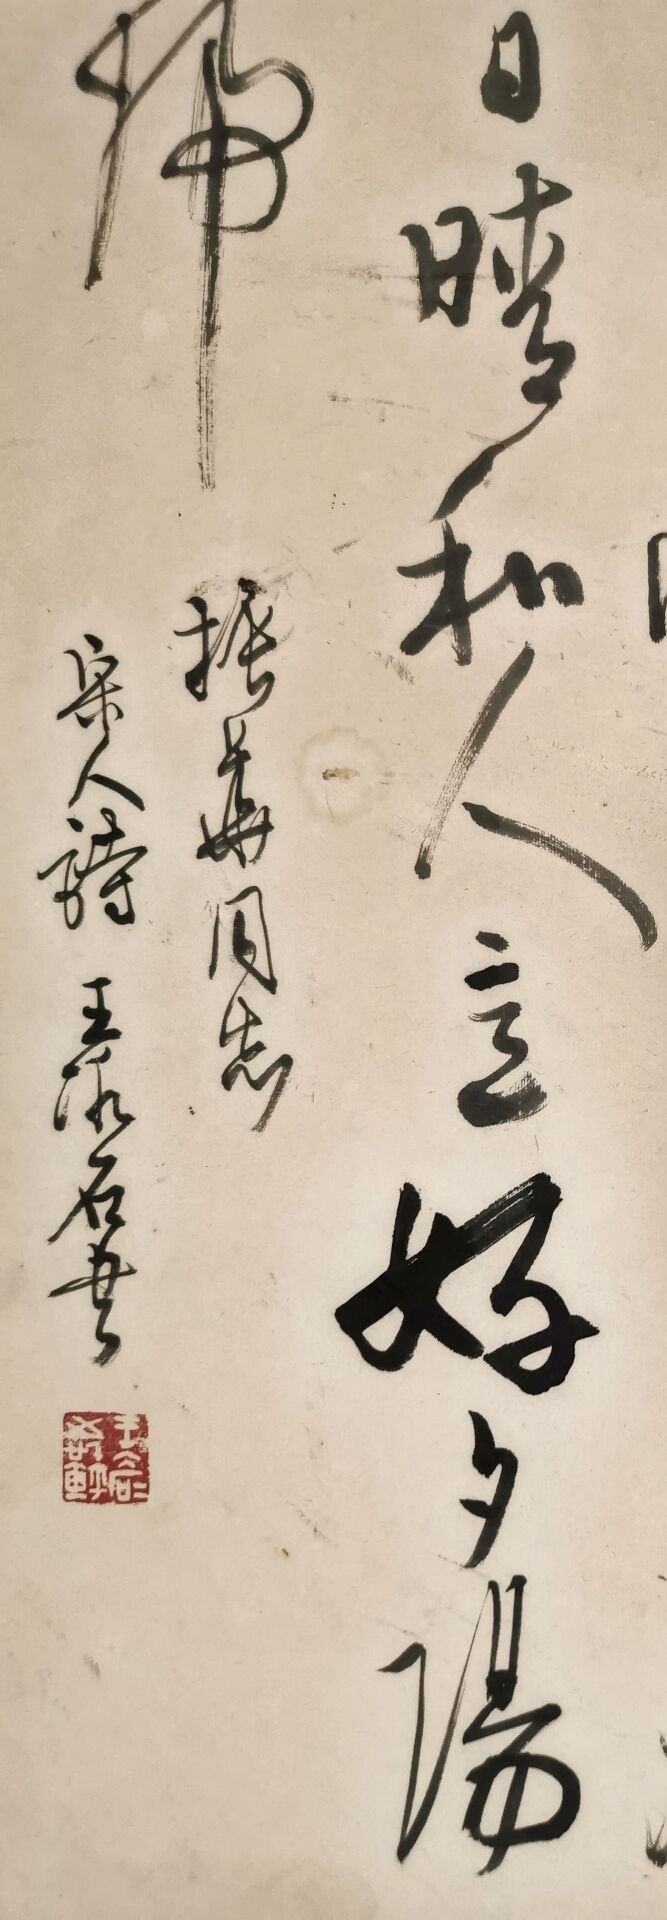 日晴和人意好夕陽
歸
振華同志
宋人詩 王冰石書